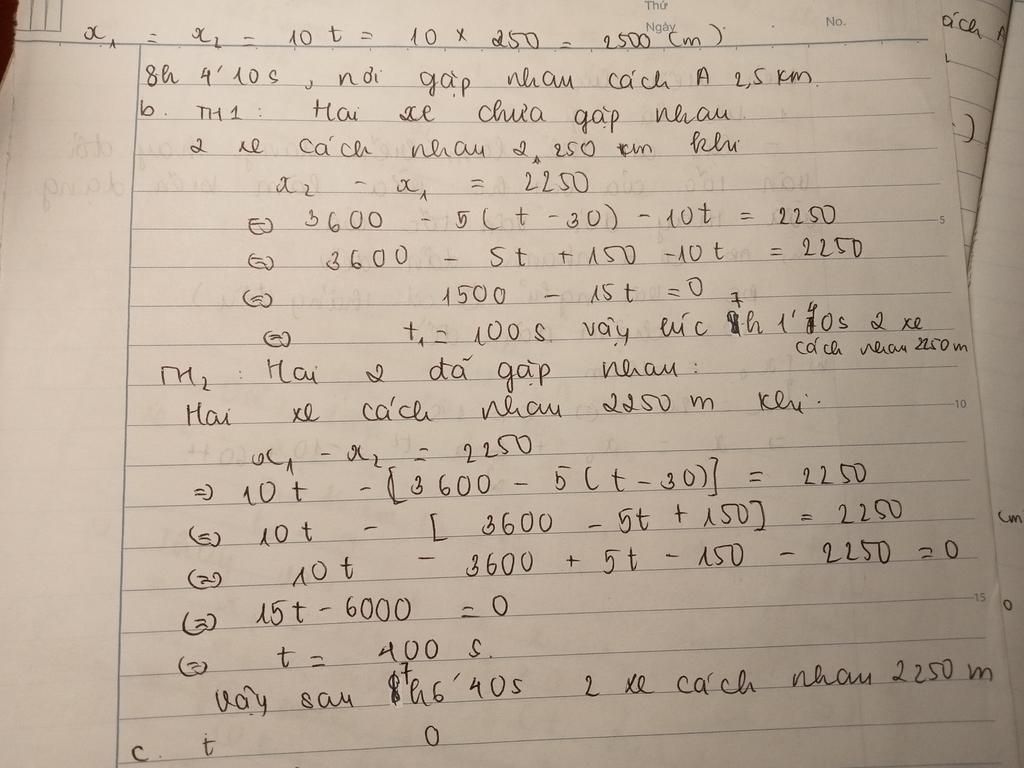 Thứ
Ngày
No.
x₁ = x₂ = 10t = 10 × 250 = 2500 (m).
8h 4'10s, nơi gặp nhau cách A 2,5 km.
b. TH1: Hai xe chưa gặp nhau.
2 xe cách nhau 2,250 km khi
x₂ - x₁ = 2250
⇔ 3600 - 5(t - 30) - 10t = 2250
5
⇔ 3600 - 5t + 150 - 10t = 2250
⇔ 1500 - 15t = 0
⇔ t₁ = 100s. vậy lúc 7h 1'40s 2 xe
cách nhau 2250 m
TH2: Hai 2 đã gặp nhau:
Hai xe cách nhau 2250 m khi.
10
x₁ - x₂ = 2250
⇒ 10t - [3600 - 5(t - 30)] = 2250
⇔ 10t - [3600 - 5t + 150] = 2250
⇔ 10t - 3600 + 5t - 150 - 2250 = 0
⇔ 15t - 6000 = 0
15
⇔ t = 400 s.
Vậy sau 7h6'40s 2 xe cách nhau 2250 m
c. t 0
cách A
cm
0